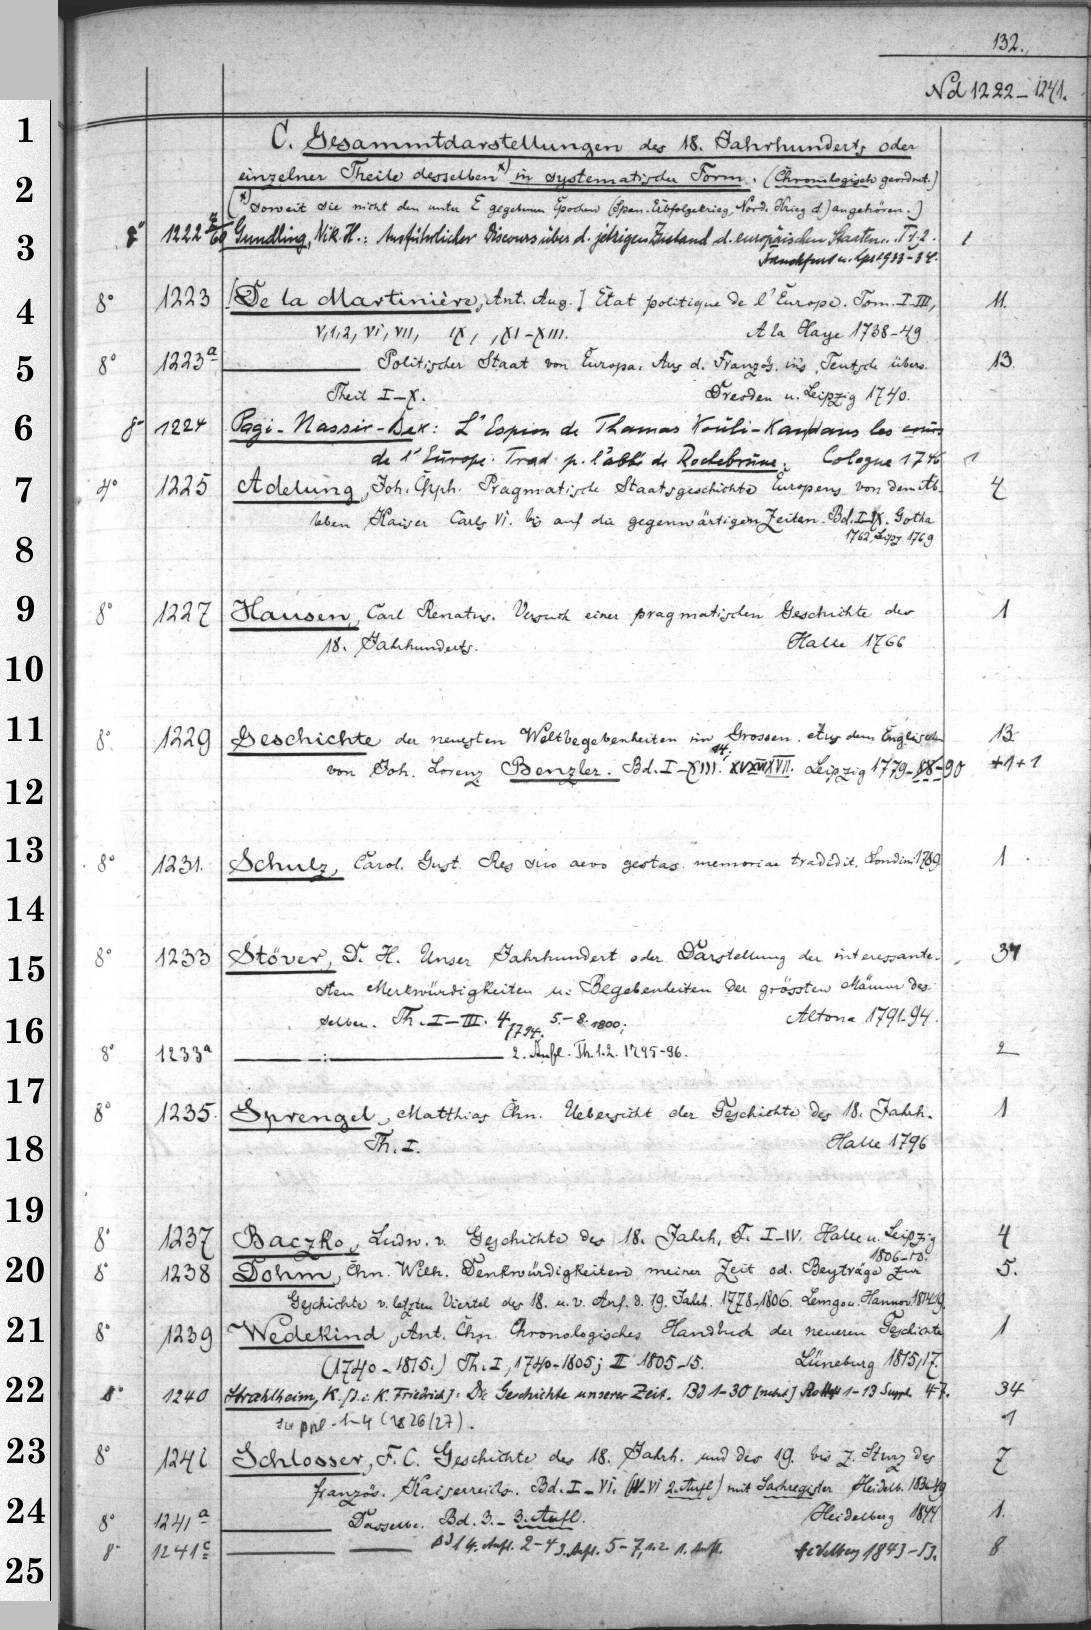 132.
Nd 1222–1241.
1
C. Gesammtdarstellungen des 18. Jahrhunderts oder
2
einzelner Theile desselben*) in systematischer Form. (Chronologisch geordnet.)
(*) Soweit sie nicht den unter E gegebenen Epochen (Span. Erbfolgekrieg, Nord. Krieg d) angehören.)
3
8° 1222 Gundling, Nik. H.: Ausführlicher Discours über d. jetzigen Zustand d. europäischen Staaten. T 1.2. 1
Frankfurt u. Lpz 1933-34.
4
8° 1223 [De la Martinière, Ant. Aug.] Etat politique de l'Europe. Tom. I–III, 11.
V,1,2, VI, VII, IX, , XI–XIII. A la Haye 1738-49
5
8° 1223a ——— Politischer Staat von Europa. Aus d. Französ. ins Teutsche übers. 13.
Theil I–X. Dresden u. Leipzig 1740.
6
8° 1224 Pagi-Nassir-Bek: L'Espion de Thamas Kouli-Kan dans les cours
de l'Europe. Trad. p. l'abbé de Rochebrune. Cologne 1746 1
7
4° 1225 Adelung, Joh. Chph. Pragmatische Staatsgeschichte Europens von dem Ab- 4
leben Kaiser Carls VI. bis auf die gegenwärtigen Zeiten. Bd. I–IX. Gotha
1762, Leipz 1769
8
9
8° 1227 Hausen, Carl Renatus. Versuch einer pragmatischen Geschichte des 1
18. Jahrhunderts. Halle 1766
10
11
8° 1229 Geschichte der neuesten Weltbegebenheiten im Grossen. Aus dem Englischen 13
von Joh. Lorenz Benzler. Bd. I–XIII. 14. XV XVI XVII. Leipzig 1779-88-90 +1+1
12
13
8° 1231. Schulz, Carol. Gust. Res suo aevo gestas memoriae tradidit. Londini 1789 1
14
15
8° 1233 Stöver, D. H. Unser Jahrhundert oder Darstellung der interessante- 37
sten Merkwürdigkeiten u. Begebenheiten der grössten Männer des-
16
selben. Th. I–III. 4 1794. 5.–8. 1800; Altona 1791-94.
8° 1233a ——— : ——— 2. Aufl. Th. 1.2. 1795-96. 2
17
8° 1235. Sprengel, Matthias Chn. Uebersicht der Geschichte des 18. Jahrh. 1
18
Th. I. Halle 1796
19
8° 1237 Baczko, Ludw. v. Geschichte des 18. Jahrh. T. I–IV. Halle u. Leipzig 4
1806–10.
20
8° 1238 Dohm, Chn. Wilh. Denkwürdigkeiten meiner Zeit od. Beyträge zur 5.
Geschichte v. letzten Viertel des 18. u. v. Anf. d. 19. Jahrh. 1778-1806. Lemgo u. Hannov 1814-19.
21
8° 1239 Wedekind, Ant. Chn. Chronologisches Handbuch der neueren Geschichte 1
(1740–1815.) Th. I, 1740–1805; II 1805–15. Lüneburg 1815,17.
22
8° 1240 Strahlheim, K. [i. K. Friedrich]: Die Geschichte unserer Zeit. Bd 1–30 1–13 Suppl. 4-7. 34
Suppl. 1–4 (1826/27). 1
23
8° 1241 Schlosser, F. C. Geschichte des 18. Jahrh. und des 19. bis z. Sturz des 7
französ. Kaiserreichs. Bd. I–VI. (IV–VI 2. Aufl) mit Sachregister Heidelb. 1836-49
24
8° 1241a ——— Dasselbe. Bd. 3. – 3. Aufl. Heidelberg 1844 1.
8° 1241c ——— ——— Bd 1 4. Aufl. 2–4 3. Aufl. 5–7, 1. Aufl. Heidelberg 1843–53. 8
25